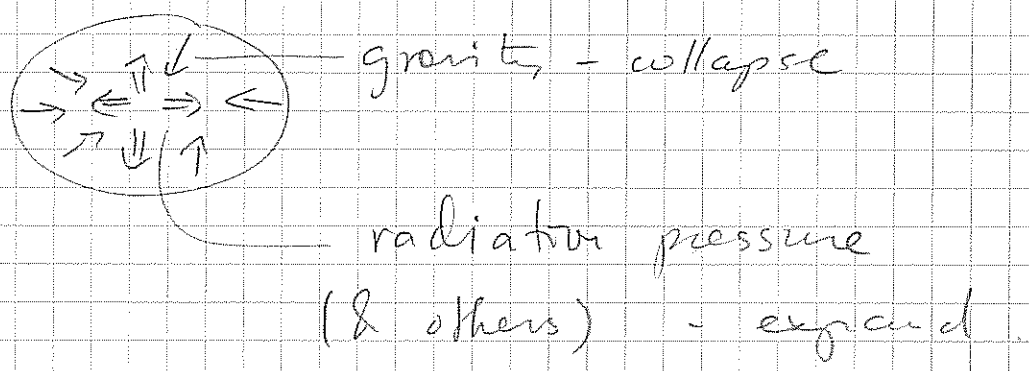 gravity - collapse
radiation pressure
(& others) - expand.